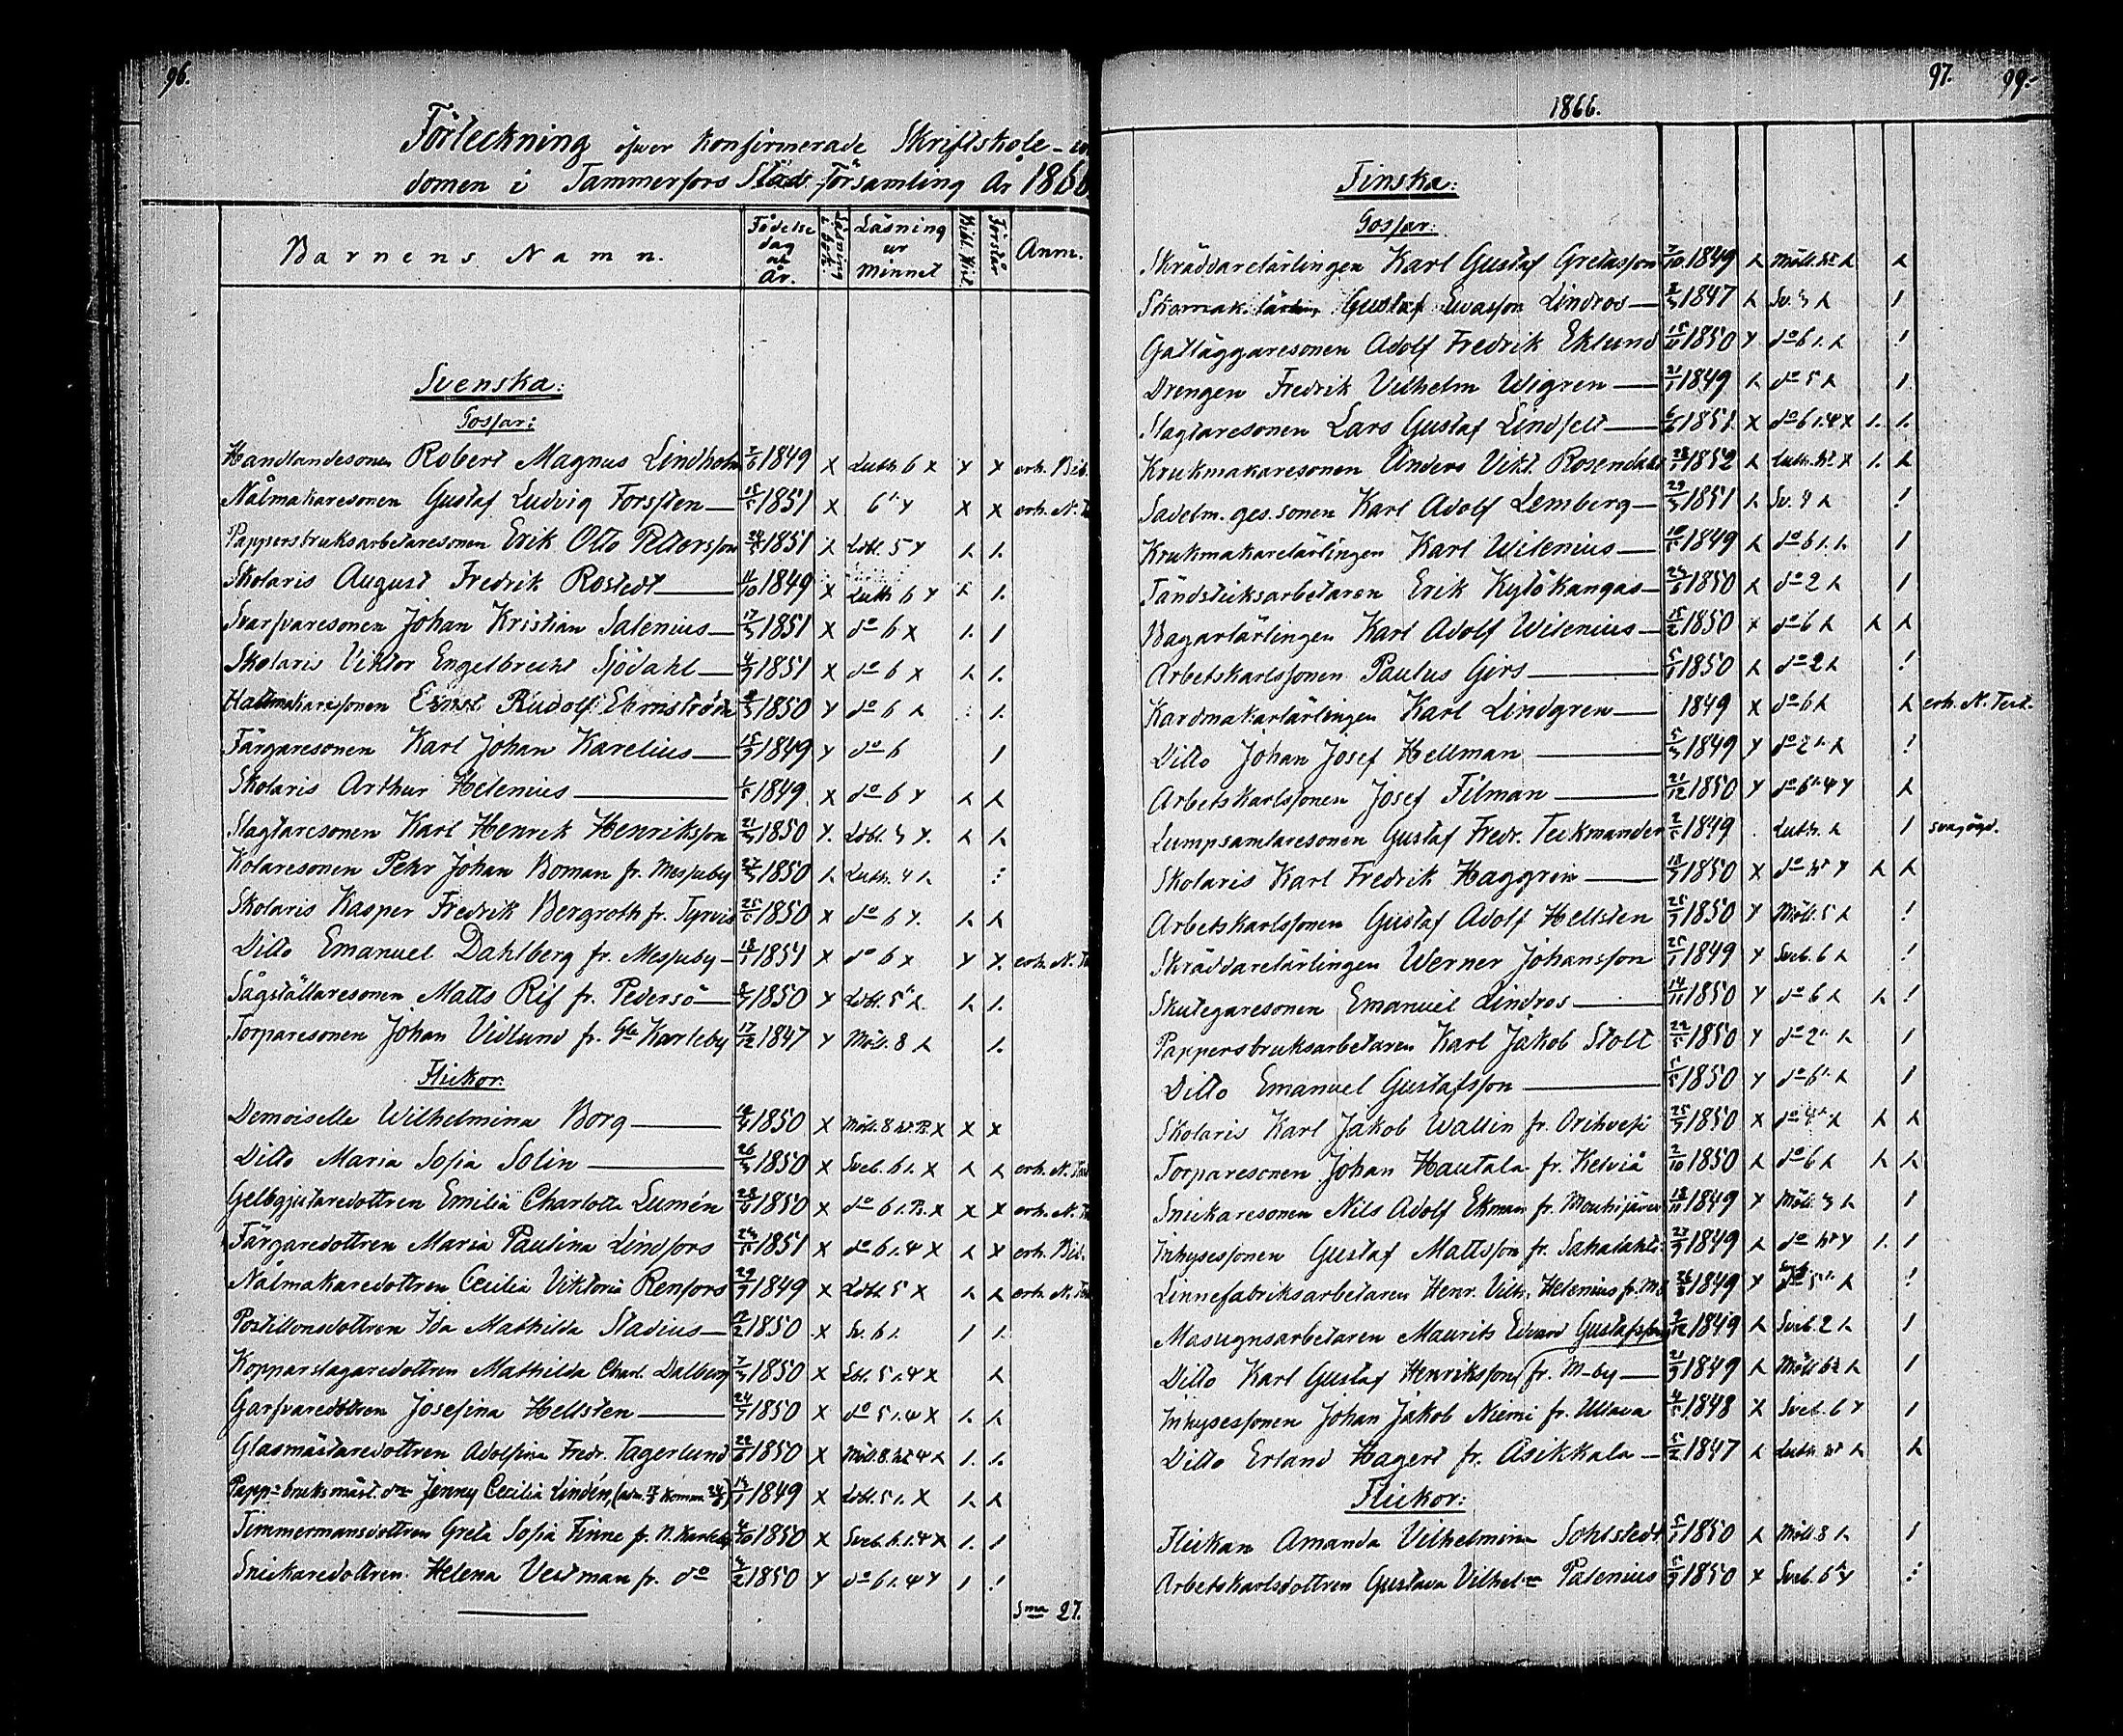 96.
Förteckning öfver Konfirmerade Skriftskole-
domen i Tammerfors Stads Församling År 186
Barnens Namn.
Födelse dag och År.
Läsning i bok.
Läsning ur Minnet
Bibl. Hist.
Förstår
Anm.
Svenska:
Gossar:
Handlandesonen Robert Magnus Lindholm 1849 x Luth 6 x x x erh. Bib.
Nålmakaresonen Gustaf Ludvig Forssten 15/5 1851 x 6 x x x erh. N. T
Pappersbruksarbetaresonen Erik Otto Pettersson 1851 Ldbl. 5
Skolaris August Fredrik Rostedt 11/10 1849 x Luth 6
Svarfvaresonen Johan Kristian Salenius 17/3 1851 x do 6 x
Skolaris Viktor Engelbrecht Sjödahl 1851 x do 6 x
Hattmakaresonen Ernst Rudolf Ehrnström 1850 do 6
Färgaresonen Karl Johan Karelius 1849 do 6
Skolaris Arthur Helenius 1849 x do 6
Slagtaresonen Karl Henrik Henriksson 21/3 1850 Ldbl. 3
Kolaresonen Pehr Johan Boman fr. Messuby 27/3 1850 Luth. 4
Skolaris Kasper Fredrik Bergroth fr. Tyrvis 25/6 1850 x do 6
Ditto Emanuel Dahlberg fr. Messuby 18/1 1851 x do 6 x erh. N. T
Sågställaresonen Matts Rif fr. Pedersö 1850 Ldbl. 5
Torparesonen Johan Vidlund fr. Gla Karleby 17/12 1847 Möll. 8
Flickor:
Demoiselle Wilhelmina Borg 1850 x Möll. 8 x x
Ditto Maria Sofia Solin 26/3 1850 x Sveb. 6 x erh. N. T
Gelbgjutaredottren Emilia Charlotta Lumén 1850 x do 6 x x erh. N. T
Färgaredottren Maria Paulina Lindfors 1851 x do 6 x x erh. Bib.
Nålmakaredottren Cecilia Viktoria Renfors 1849 x Ldbl. 5 x erh. N. T
Postillonsdottren Ida Mathilda Stadius 1850 x Sv. 6
Kopparslagaredottren Mathilda Charl. Dalberg 7/3 1850 x Lbl. 5
Garfvaredottren Josefina Hellsten 1850 x do 5
Glasmästaredottren Adolfina Fredr. Tagerlund 1850 x Möll. 8
Papp-bruksmäst. dr Jenny Cecilia Lindén, 1849 x Ldbl. 5 x
Timmermansdottren Greta Sofia Finne fr. N. Karleby 1850 x Sveb. 6
Snickaredottren Helena Vestman fr. do 1850 do 6
Sma 27.
97. 99.
1866.
Finska:
Gossar:
Skräddarelärlingen Karl Gustaf Gretasson 7/10 1849 Möll.
Skomak. lärling Gustaf Evasson Lindros 1847 Sv. 3
Gatläggaresonen Adolf Fredrik Eklund 1850 do 6
Drengen Fredrik Vilhelm Wigren 21/1 1849 do 5
Slagtaresonen Lars Gustaf Lindfelt 1851 x do 6
Krukmakaresonen Anders Vikt. Rosendahl 1852 Luth.
Sadelm. ges. sonen Karl Adolf Lemberg 29/3 1851 Sv. 4
Krukmakarelärlingen Karl Wilenius 1849 do 6
Tändsticksarbetaren Erik Kytökangas 1850 do 2
Bagarlärlingen Karl Adolf Wilenius 15/2 1850 x do 6
Arbetskarlssonen Paulus Girs 1850 do 2
Kardmakarlärlingen Karl Lindgren 1849 x do 6 erh. N. Test.
Ditto Johan Josef Hellman 5/3 1849 do 2
Arbetskarlssonen Josef Filman 21/12 1850 do 6
Lumpsamlaresonen Gustaf Fredr. Teckmander 1849 Luth. svagögd.
Skolaris Karl Fredrik Haggrén 1850 x do
Arbetskarlssonen Gustaf Adolf Hellsten 1850 Möll. 5
Skräddarelärlingen Werner Johansson 1849 Sveb. 6
Skutegaresonen Emanuel Lindros 14/11 1850 do 6
Pappersbruksarbetaren Karl Jakob Stolt 1850 do 2
Ditto Emanuel Gustafsson 1850 do 6
Skolaris Karl Jakob Wallin fr. Orihvesi 1850 x do 4
Torparesonen Johan Hautala fr. Kelviå 2/10 1850 do 6
Snickaresonen Nils Adolf Ekman fr. Mouhijärvi 1849 Möll. 3
Inhysessonen Gustaf Mattsson fr. Sahalahti 1849 do
Linnefabriksarbetaren Henr. Vilh. Helenius fr. M 1849 5
Masugnsarbetaren Maurits Edvard Gustafsson 1849 Sveb. 2
Ditto Karl Gustaf Henriksson fr. M-by 1849 Möll. 6
Inhysessonen Johan Jakob Niemi fr. Ullava 1848 Sveb. 6
Ditto Erland Hagert fr. Asikkala 5/2 1847 Luth.
Flickor:
Flickan Amanda Vilhelmina Sohlstedt 1850 Möll. 8
Arbetskarlsdottren Gustava Vilhel-a Palenius 1850 Sveb. 6